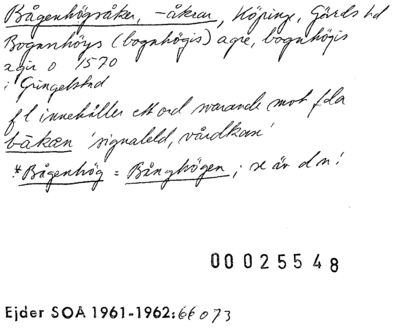 Bågenhögsåker, -åkrar, Köpinge, Gärds hd
Bognshöys (bognhögis) agre, bognhögis
agir o 1570
i Gringelstad
f l innehåller ett ord svarande mot fda
båken 'signaleld, vårdkase'
*Bågenhög = Bånghögen, se är d n!
00025548
Ejder SOÅ 1961-1962:66073